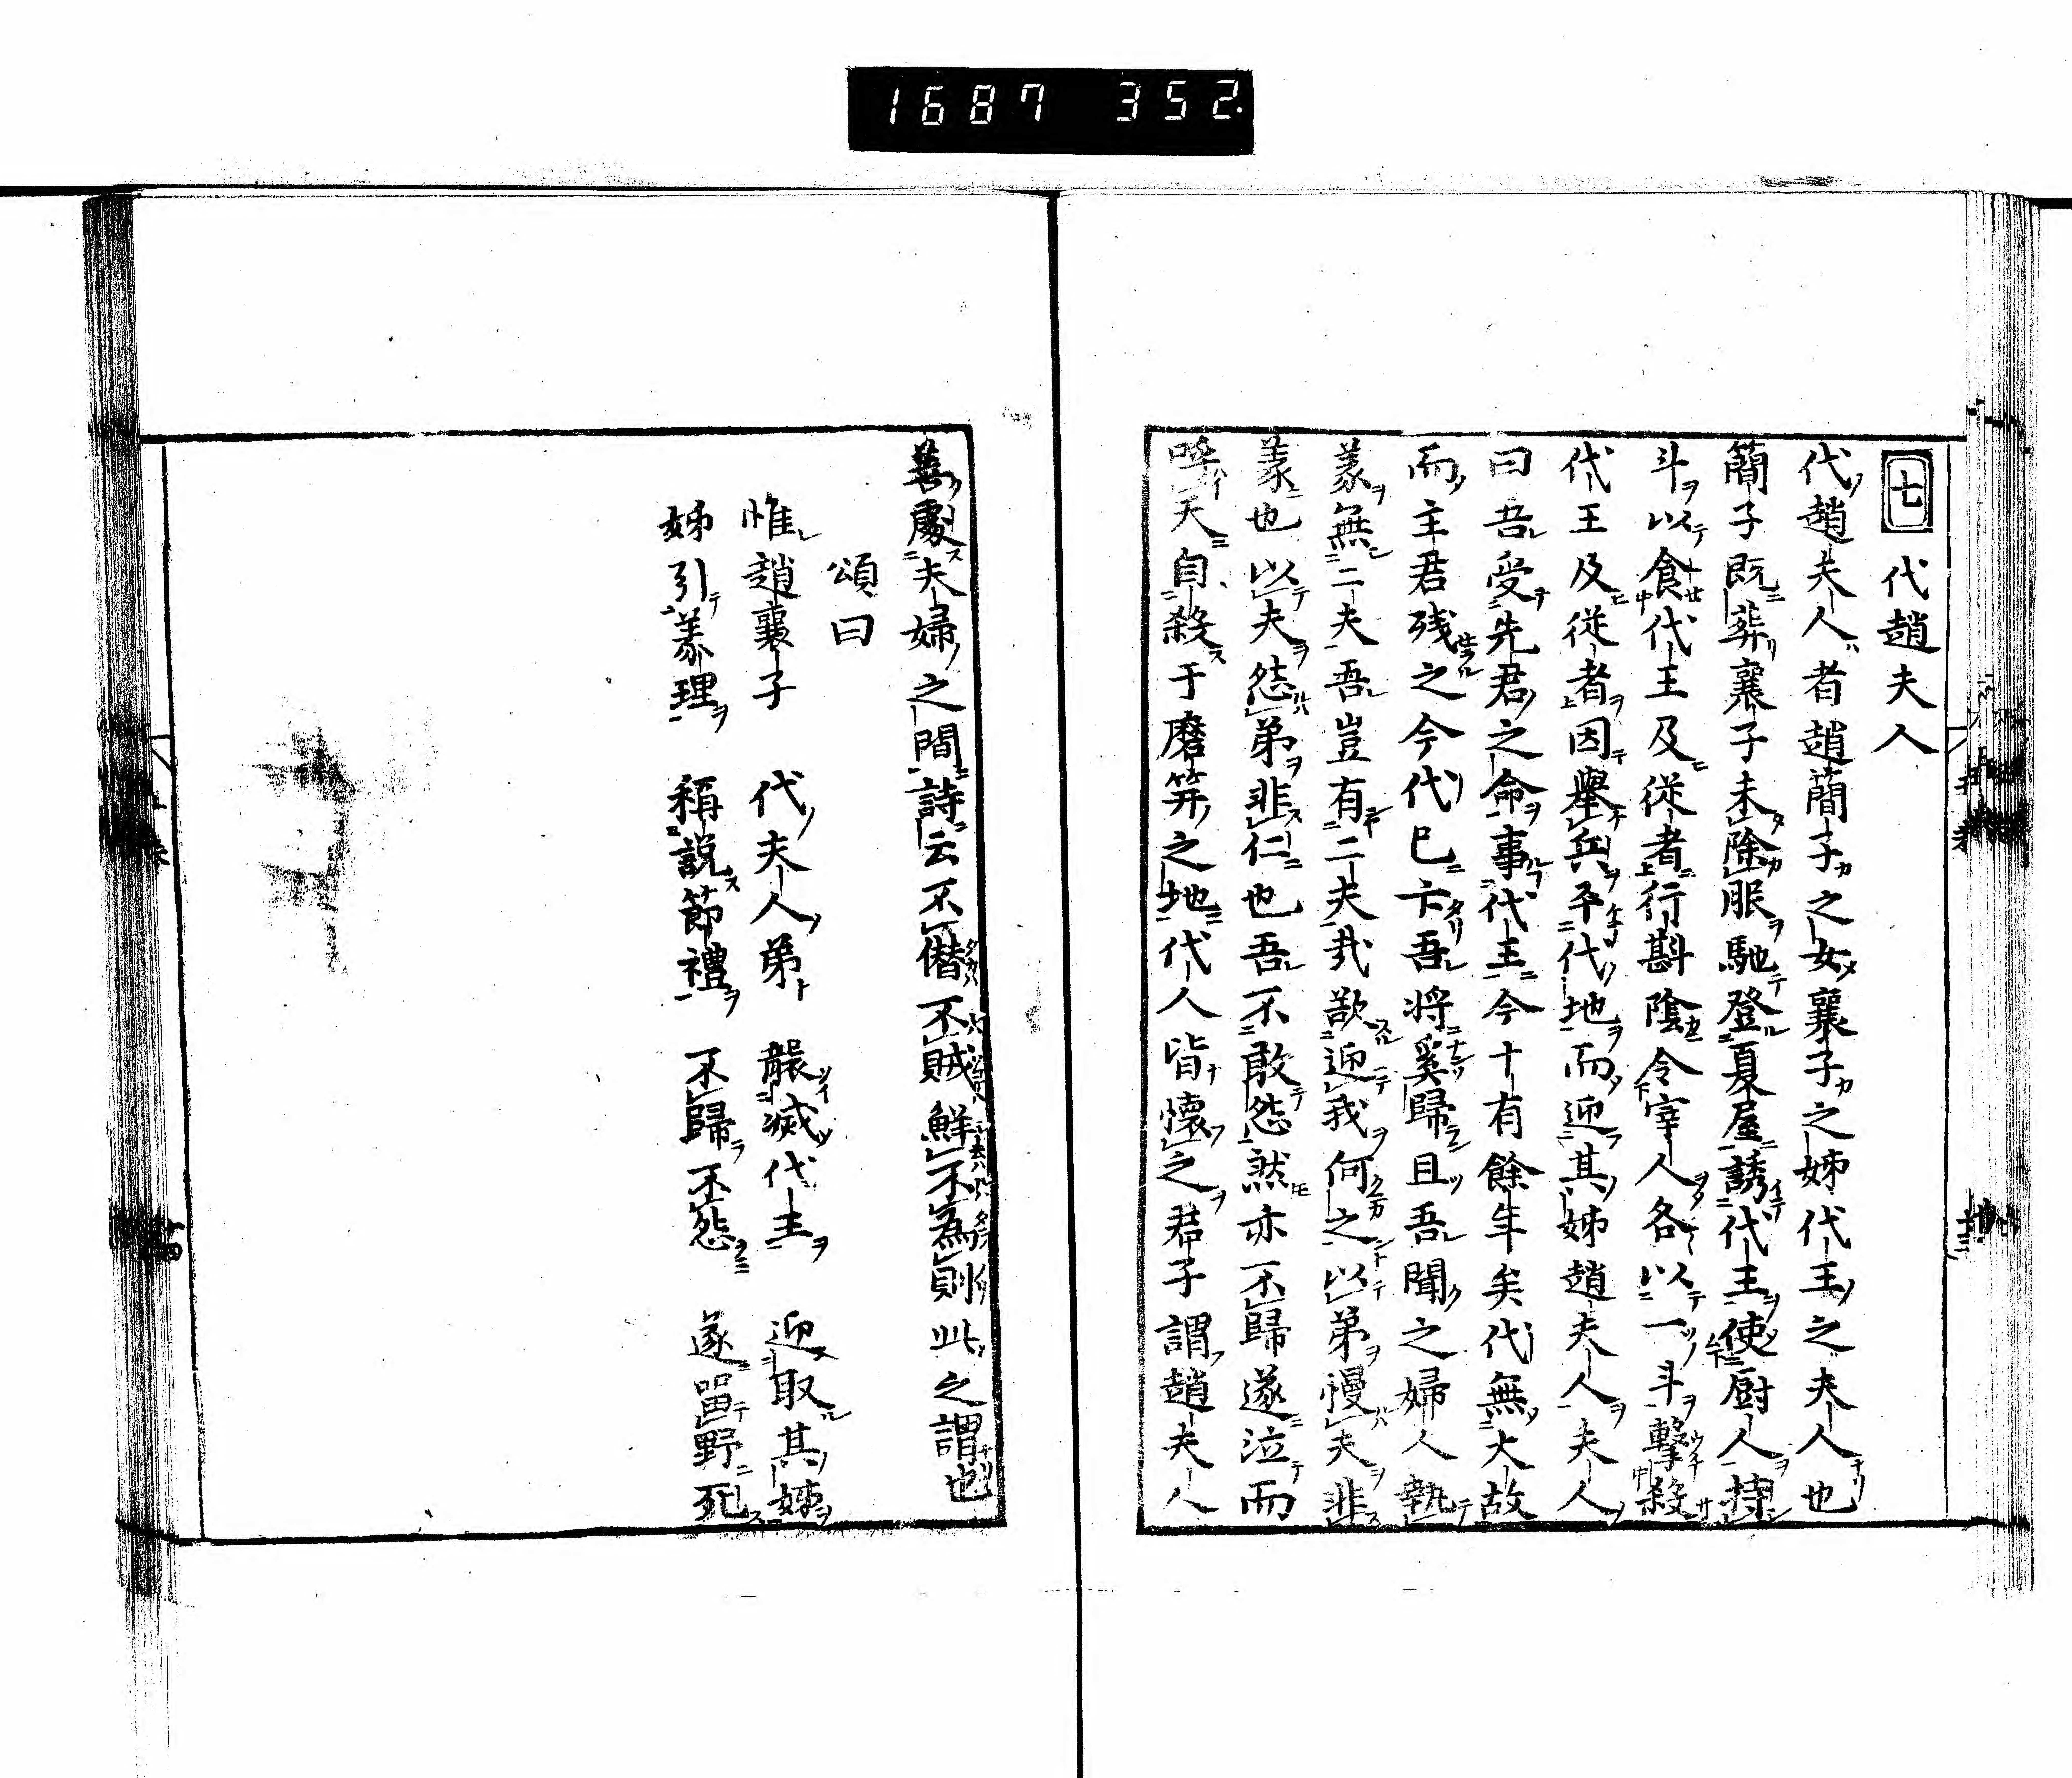 1687 352.
七 代趙夫人
代趙夫人者趙簡子之女襄子之姊代王之夫人也
簡子既葬襄子未除服馳登夏屋誘代王使厨人持
斗以食代王及從者行斟陰令宰人各以一斗擊殺
代王及從者因舉兵平代地而迎其姊趙夫人夫人
曰吾受先君之命事代王今十有餘年矣代無大故
而主君残之今代已亡吾將奚歸且吾聞之婦人執
義無二夫吾豈有二夫哉欲迎我何之以弟慢夫非
義也以夫怨弟非仁也吾不敢怨然亦不歸遂泣而
呼天自殺于磨笄之地代人皆懷之君子謂趙夫人
善處夫婦之間詩云不僭不賊鮮不為則此之謂也
頌曰
惟趙襄子 代夫人弟 襲滅代主 迎取其姊
姊引義理 稱説節禮 不歸不怨 遂畱野死